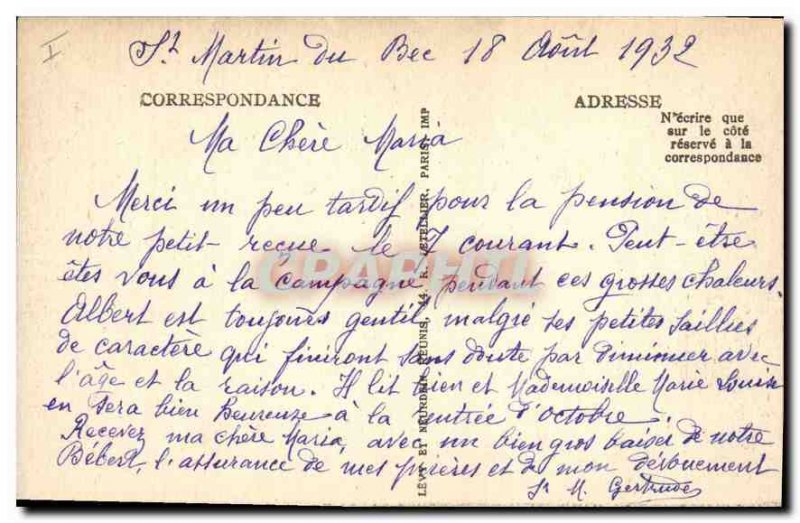 I
St Martin du Bec 18 Août 1932
CORRESPONDANCE
ADRESSE
N'écrire que
sur le côté
réservé à la
correspondance
Ma Chère Maria
Merci un peu tardif pour la pension de
notre petit reçue le 7 courant. Peut-être
êtes vous à la Campagne pendant ces grosses chaleurs.
Albert est toujours gentil malgré ses petites saillies
de caractère qui finiront sans doute par diminuer avec
l'âge et la raison. Il lit bien et Mademoiselle Marie Louise
en sera bien heureuse à la rentrée d'octobre.
Recevez ma chère Maria, avec un bien gros baiser de notre
Bébert, l'assurance de mes prières et de mon dévouement
Sr M. Gertrude
LÉVY ET NEURDEIN RÉUNIS, 44, R. LETELLIER, PARIS. IMP
CPAPHIL